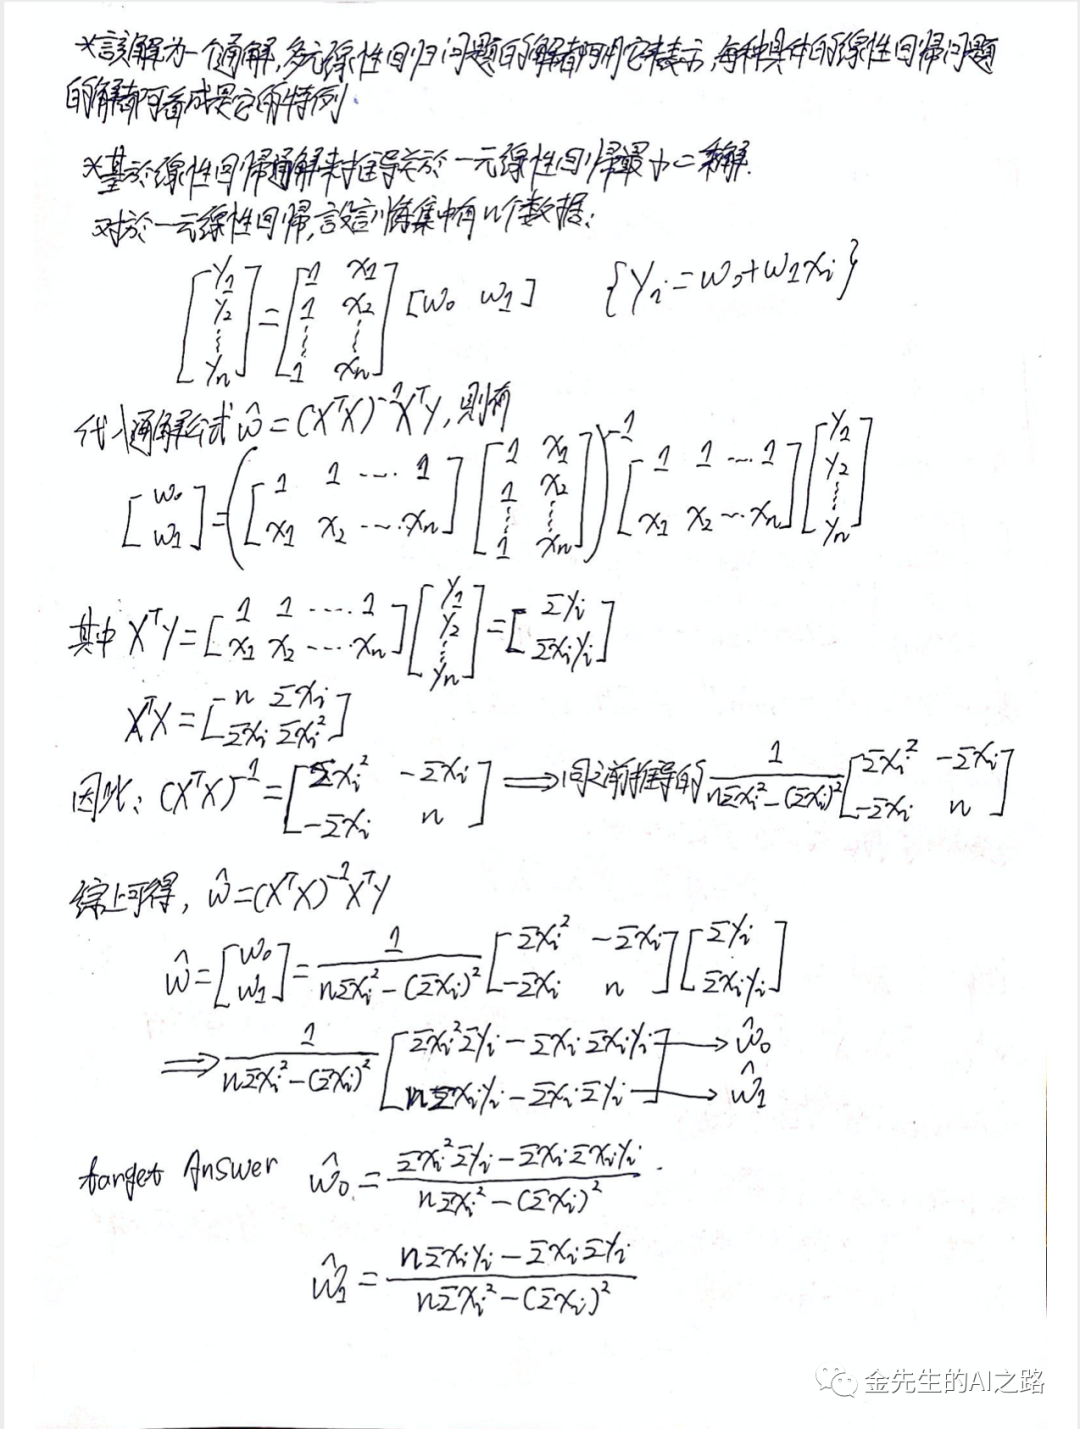 *該解为一个通解,多元線性回归问题的解都可用它來表示,每种具体的線性回帰问题
的解都可看成是它的特例.
*基於線性回帰通解来推导关於一元線性回帰最小二乘解.
对於一元線性回帰,設訓练集中有n个数据:
[y₁ y₂ ⋮ yₙ] = [1 x₁ 1 x₂ ⋮ ⋮ 1 xₙ] [w₀ w₁] {yᵢ=w₀+w₁xᵢ}
代入通解公式ŵ=(XᵀX)⁻¹XᵀY,則有
[w₀ w₁] = ([1 1 ⋯ 1 x₁ x₂ ⋯ xₙ] [1 x₁ 1 x₂ ⋮ ⋮ 1 xₙ])⁻¹ [1 1 ⋯ 1 x₁ x₂ ⋯ xₙ] [y₁ y₂ ⋮ yₙ]
其中XᵀY=[1 1 ⋯ 1 x₁ x₂ ⋯ xₙ] [y₁ y₂ ⋮ yₙ] = [Σyᵢ Σxᵢyᵢ]
XᵀX=[n Σxᵢ Σxᵢ Σxᵢ²]
因此: (XᵀX)⁻¹=[Σxᵢ² -Σxᵢ -Σxᵢ n] ⟹ 同之前推导的 1/(nΣxᵢ²-(Σxᵢ)²) [Σxᵢ² -Σxᵢ -Σxᵢ n]
綜上可得, ŵ=(XᵀX)⁻¹XᵀY
ŵ=[w₀ w₁]=1/(nΣxᵢ²-(Σxᵢ)²) [Σxᵢ² -Σxᵢ -Σxᵢ n] [Σyᵢ Σxᵢyᵢ]
⟹ 1/(nΣxᵢ²-(Σxᵢ)²) [Σxᵢ²Σyᵢ-Σxᵢ·Σxᵢyᵢ nΣxᵢyᵢ-Σxᵢ·Σyᵢ] → ŵ₀ → ŵ₁
target Answer ŵ₀=(Σxᵢ²Σyᵢ-Σxᵢ·Σxᵢyᵢ)/(nΣxᵢ²-(Σxᵢ)²).
ŵ₁=(nΣxᵢyᵢ-Σxᵢ·Σyᵢ)/(nΣxᵢ²-(Σxᵢ)²)
金先生的AI之路